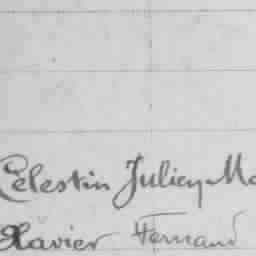 Célestin Julien Ma
Xavier Fernand